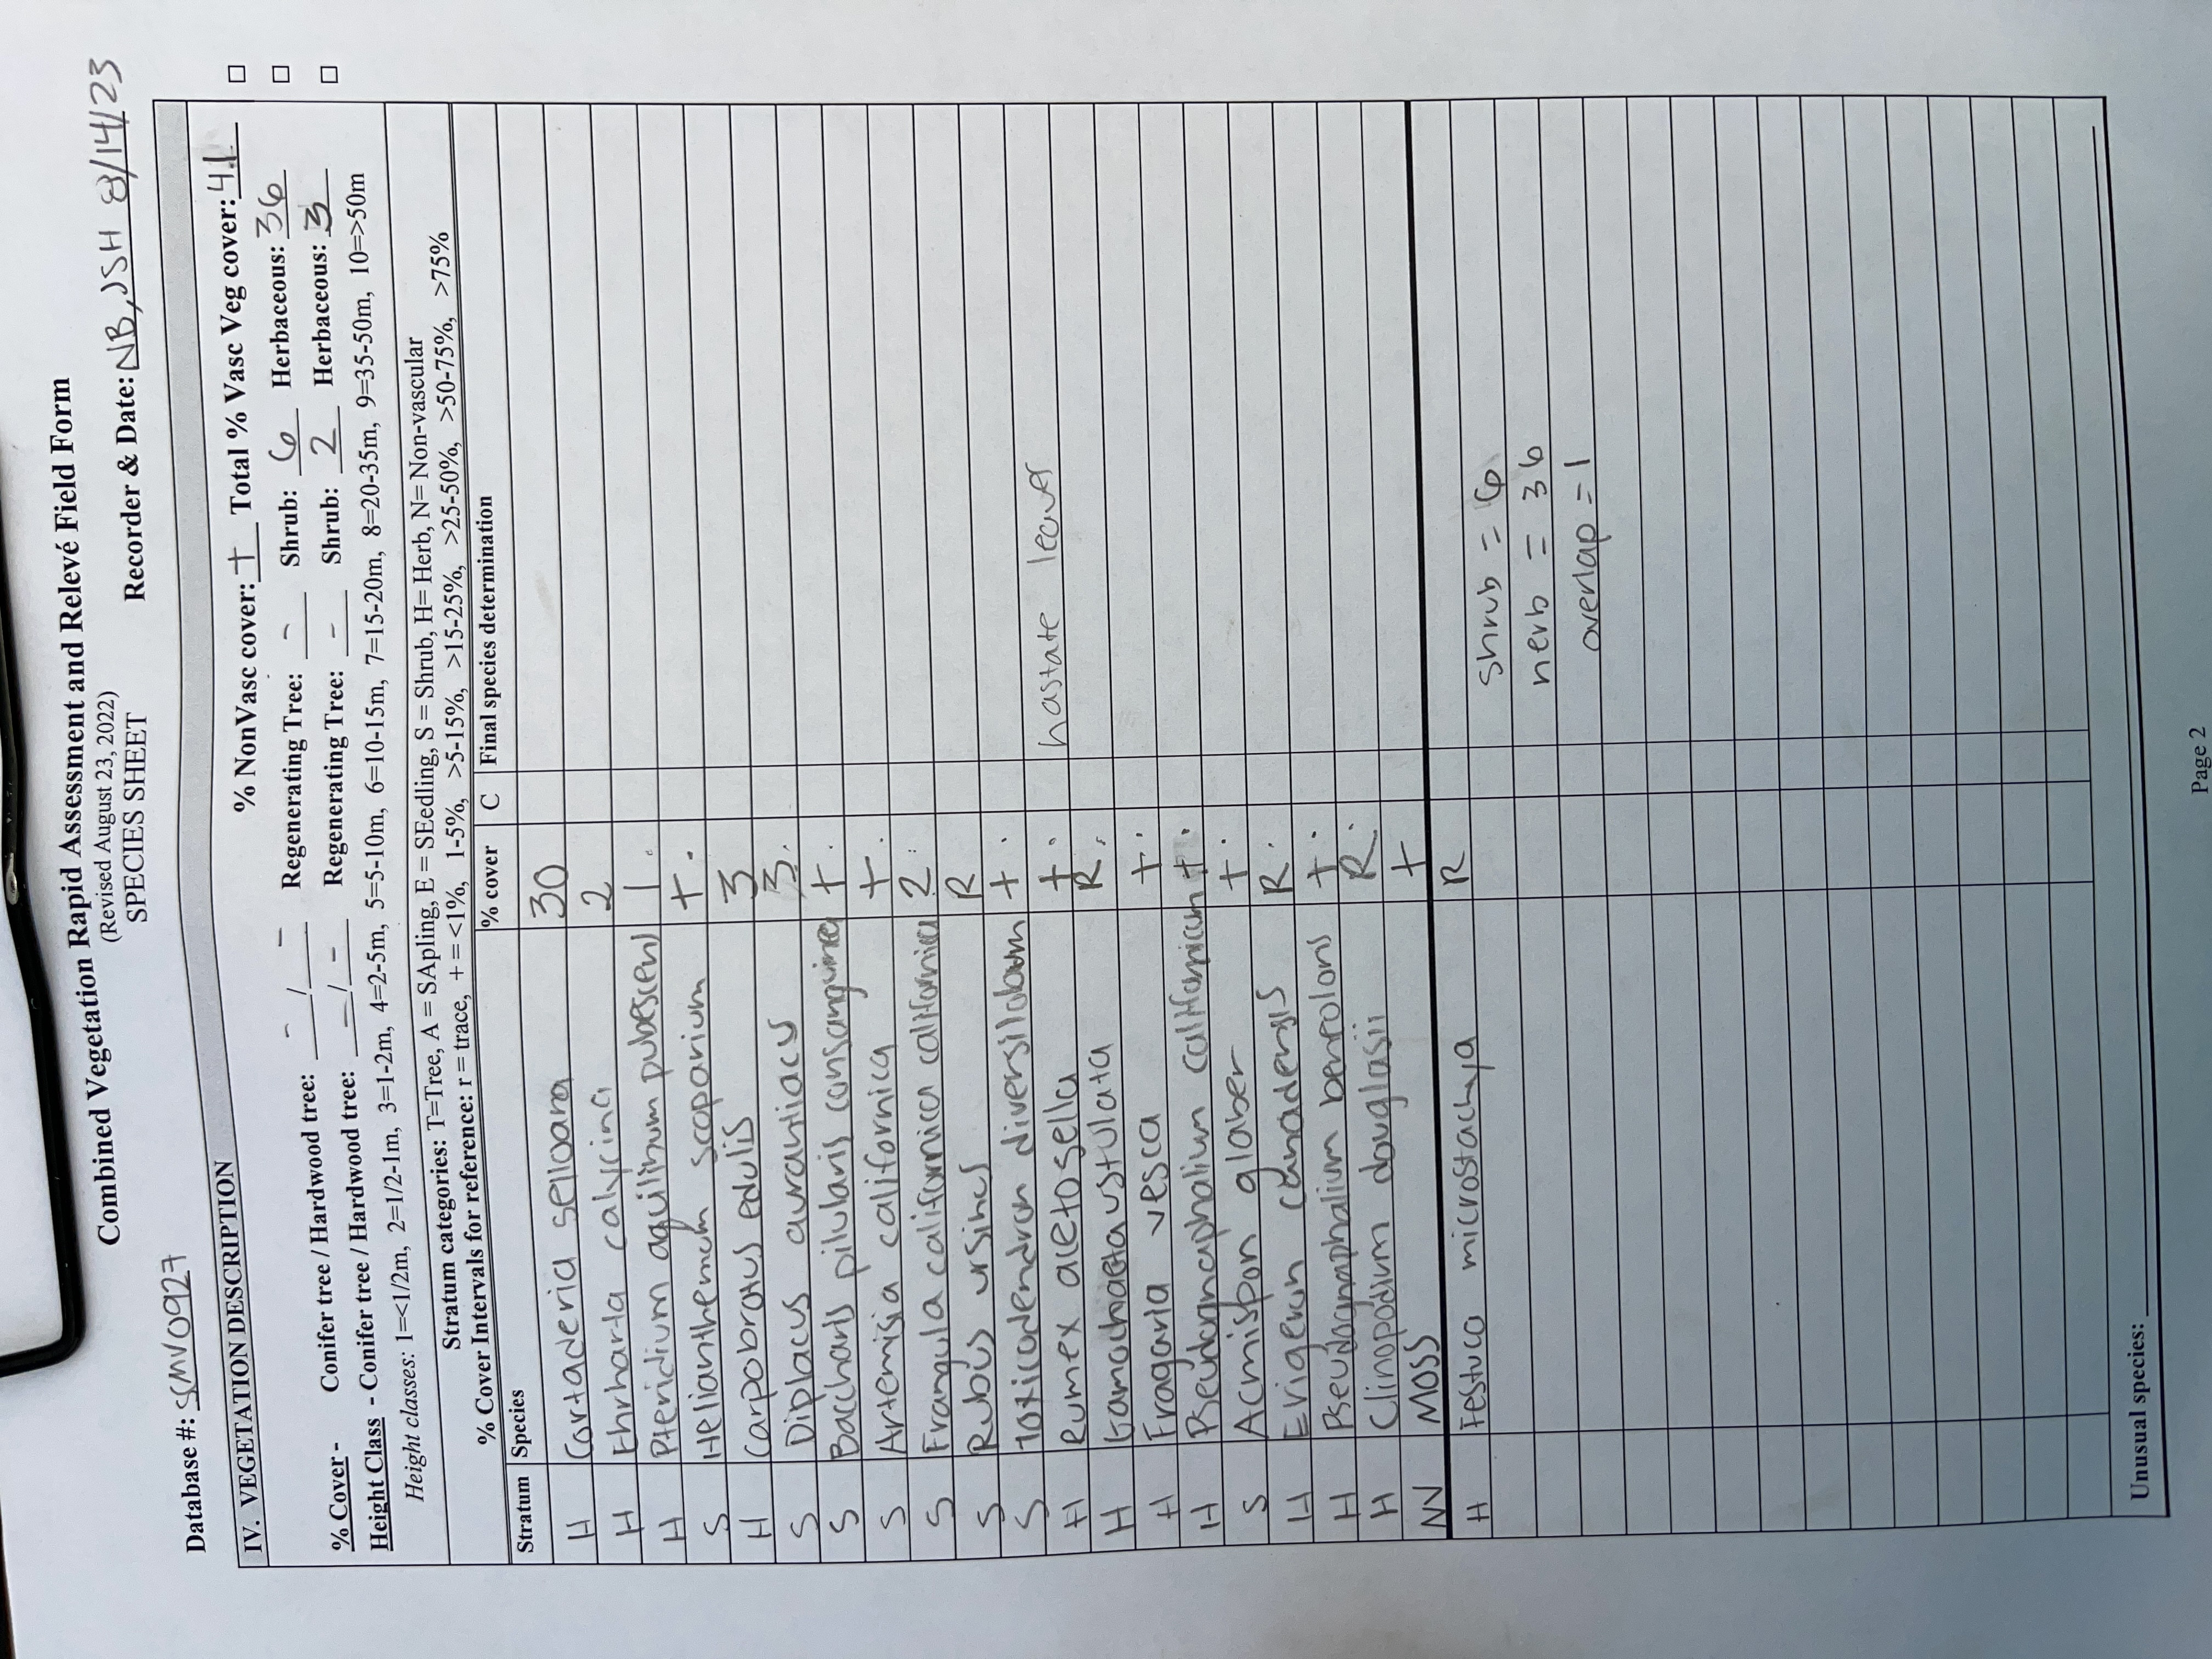 Combined Vegetation Rapid Assessment and Relevé Field Form
(Revised August 23, 2022)
SPECIES SHEET
Database #: SCMV0927 Recorder & Date: NB, JSH 8/14/23
IV. VEGETATION DESCRIPTION
% NonVasc cover: + Total % Vasc Veg cover: 41
% Cover - Conifer tree / Hardwood tree: - / - Regenerating Tree: - Shrub: 6 Herbaceous: 36
Height Class - Conifer tree / Hardwood tree: - / - Regenerating Tree: - Shrub: 2 Herbaceous: 3
Height classes: 1=<1/2m, 2=1/2-1m, 3=1-2m, 4=2-5m, 5=5-10m, 6=10-15m, 7=15-20m, 8=20-35m, 9=35-50m, 10=>50m
Stratum categories: T=Tree, A = SApling, E = SEedling, S = Shrub, H= Herb, N= Non-vascular
% Cover Intervals for reference: r = trace, + = <1%, 1-5%, >5-15%, >15-25%, >25-50%, >50-75%, >75%
Stratum Species % cover C Final species determination
H Cortaderia selloana 30
H Ehrharta calycina 2
H Pteridium aquilinum pubescens 1.
S Helianthemum scoparium +.
H Carpobrotus edulis 3
S Diplacus aurantiacus 3.
S Baccharis pilularis consanguinea +.
S Artemisia californica +.
S Frangula californica californica 2.
S Rubus ursinus R
S Toxicodendron diversilobum +.
H Rumex acetosella +. hastate leaves
H Gamochaeta ustulata R.
H Fragaria vesca +.
H Pseudognaphalium californicum +.
S Acmispon glaber +.
H Erigeron canadensis R.
H Pseudognaphalium beneolens +.
H Clinopodium douglasii R.
N Moss +
H Festuca microstachya R
shrub = 6
herb = 36
overlap = 1
Unusual species:
Page 2